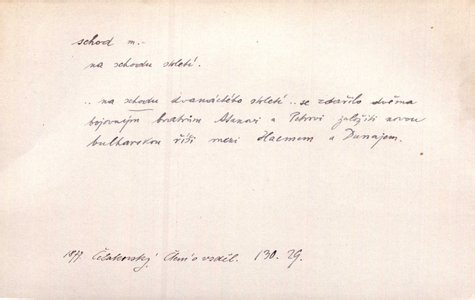 schod m.-
na schodu století.
.. na schodu dvanáctého století .. se zdařilo dvěma
bojovným bratrům Asanovi a Petrovi založiti novou
bulharskou říši mezi Haemem a Dunajem.
1877. Čelakovský Čten o vzděl. 130. 29.